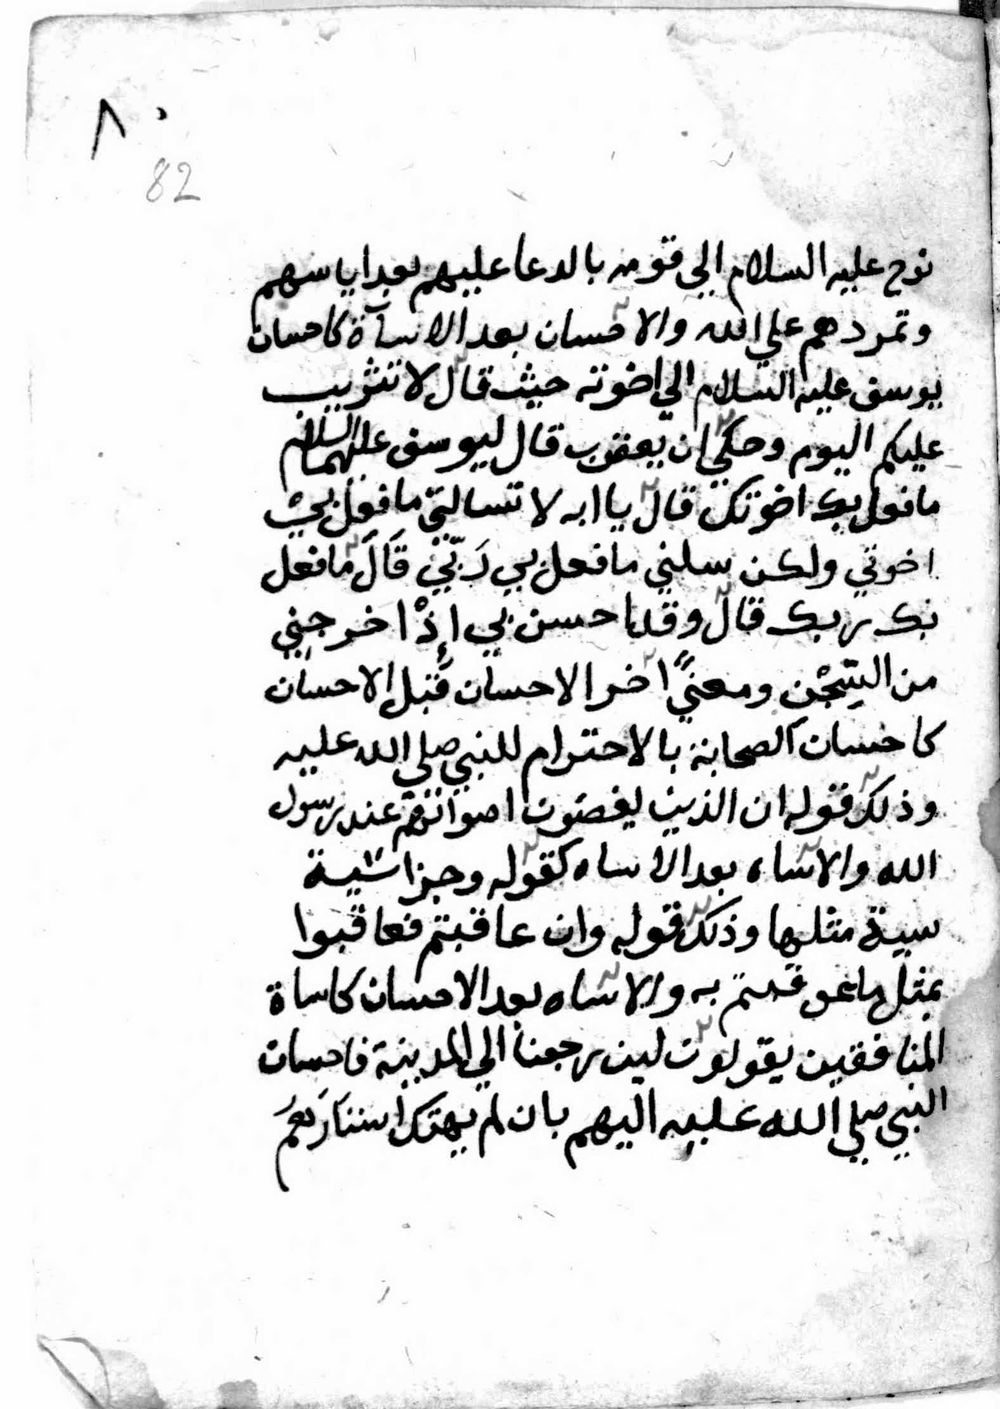 ٨٠
82
نوح عليه السلام الي قومه بالدعا عليهم بعد اياسهم
وتمردهم علي الله والاحسان بعد الاسآة كاحسان
يوسف عليه السلام الي اخوته حيث قال لا تثريب
عليكم اليوم وحكي ان يعقوب قال ليوسف عليهما السلام
ما فعل بك اخوتك قال يا ابه لا تسالني ما فعل بي
اخوتي ولكن سلني ما فعل بي رَبّي قَالَ ما فعل
بك ربك قال وقد احسن بي إِذْ اخرجني
من السِّجْنِ ومعنيً اخر الاحسان قبل الاحسان
كاحسان الصحابة بالاحترام للنبي صلي الله عليه
وذلك قوله ان الذين يغضون اصواتهم عند رسول
الله والاساه بعد الاساه كقوله وجزا سيية
سيية مثلها وذلك قوله وان عاقبتم فعاقبوا
بمثل ما عوقبتم به والاساه بعد الاحسان كاساة
المنافقين يقولون لين رجعنا الي المدينة فاحسان
النبي صلي الله عليه اليهم بان لم يهتك استارهم